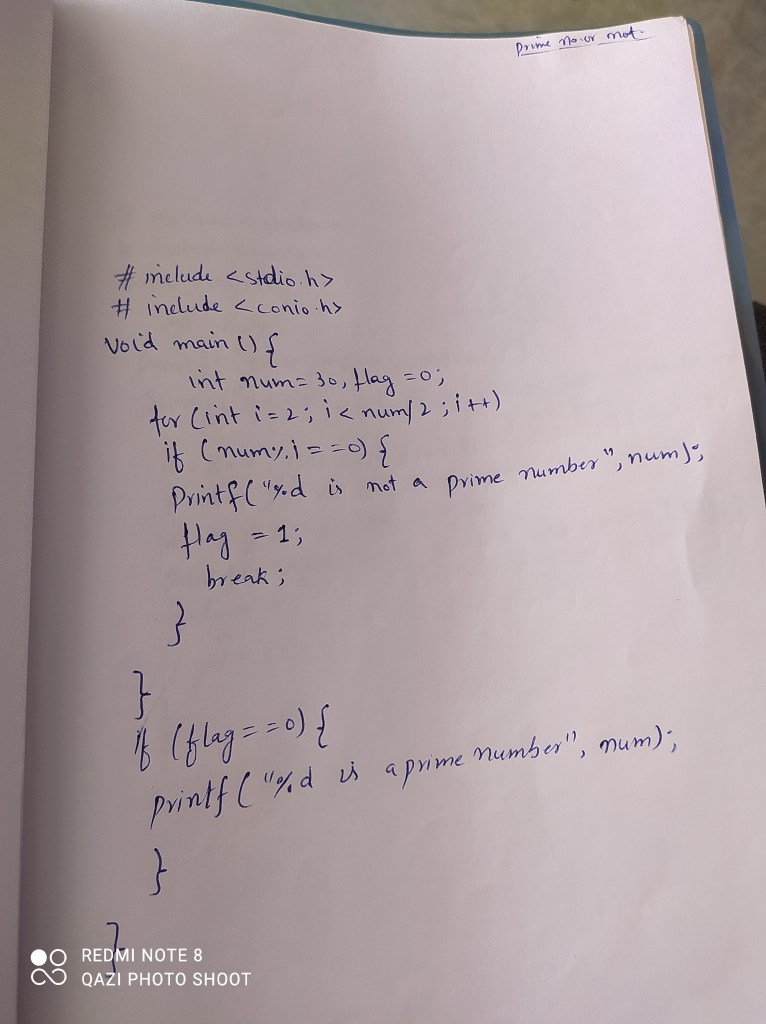 Prime no. or not.
# include <stdio.h>
# include <conio.h>
void main () {
int num = 30, flag = 0;
for (int i = 2; i < num/2 ; i++)
if (num % i == 0) {
Printf("%d is not a prime number", num);
flag = 1;
break;
}
}
if (flag == 0) {
printf ("%d is a prime number", num);
}
}
REDMI NOTE 8
QAZI PHOTO SHOOT